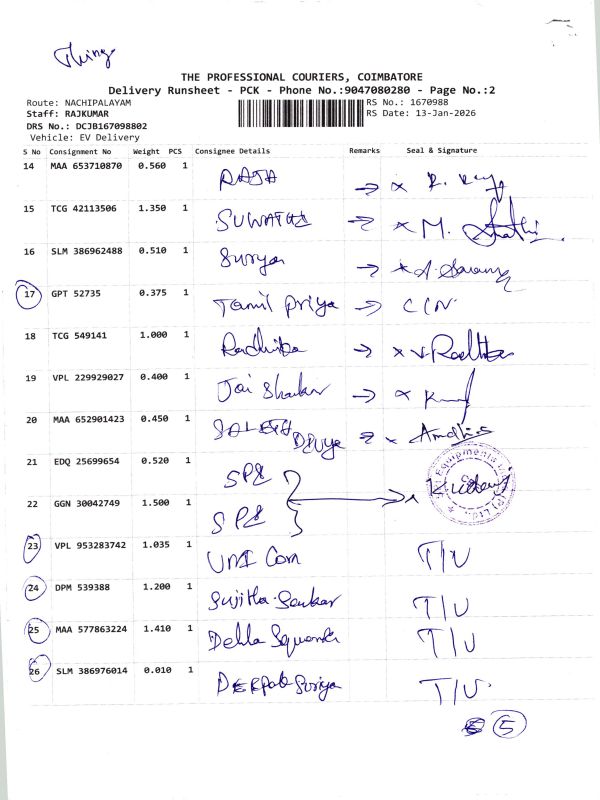 THE PROFESSIONAL COURIERS, COIMBATORE
Delivery Runsheet - PCK - Phone No.:9047080280 - Page No.:2
Route: NACHIPALAYAM RS No.: 1670988
Staff: RAJKUMAR RS Date: 13-Jan-2026
DRS No.: DCJB167098802
Vehicle: EV Delivery
S No Consignment No Weight PCS Consignee Details Remarks Seal & Signature
14 MAA 653710870 0.560 1 RAJA → x
15 TCG 42113506 1.350 1 SUWATHI → x M.
16 SLM 386962488 0.510 1 Surya → x
17 GPT 52735 0.375 1 Tamil Priya →
18 TCG 549141 1.000 1 Radhika → x
19 VPL 229929027 0.400 1 Jai Shankar → x
20 MAA 652901423 0.450 1 Divya → x
21 EDQ 25699654 0.520 1 SPE
22 GGN 30042749 1.500 1 SPE
Equipments
23 VPL 953283742 1.035 1 UNI Com T/U
24 DPM 539388 1.200 1 Sujitha Sankar T/U
25 MAA 577863224 1.410 1 T/U
26 SLM 386976014 0.010 1 Suriya T/U
5